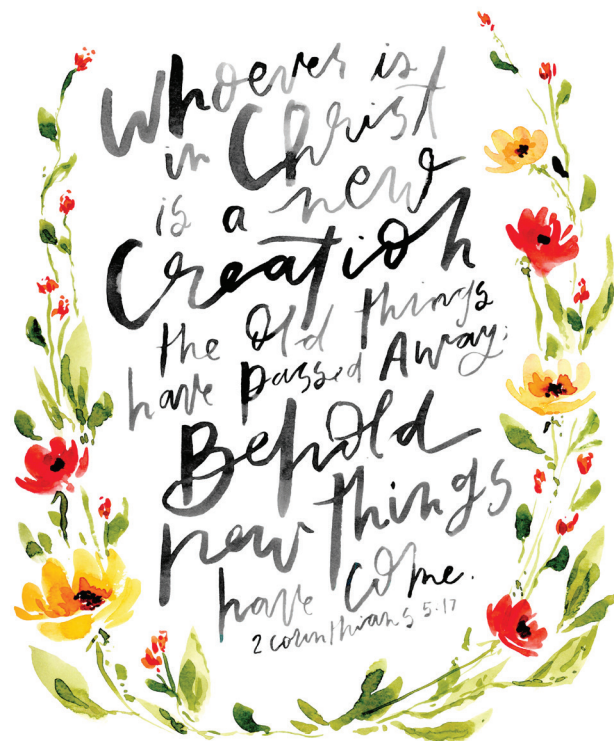 Whoever is
in Christ
is a new
Creation
the Old things
have passed Away;
Behold
new things
have come.
2 corinthians 5.17